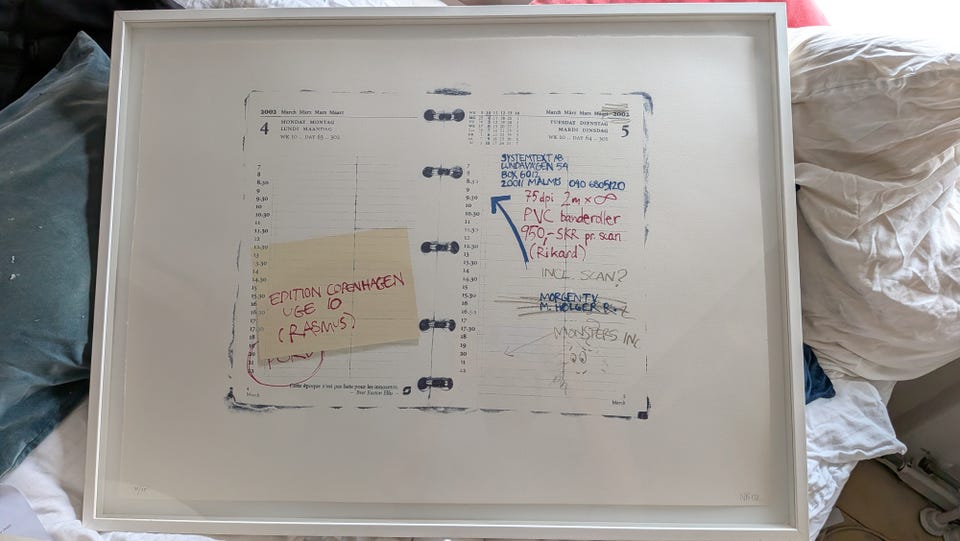 2002 March März Mars Maart
4 MONDAY MONTAG
LUNDI MAANDAG
WK 10 – DAY 63 – 302
7
8
8.30
9
9.30
10
10.30
11
11.30
12
12.30
13
13.30
14
14.30
15
15.30
16
16.30
17
17.30
18
19
20
21
EDITION COPENHAGEN
UGE 10
(RASMUS)
– Bret Easton Ellis –
March
March März Mars Maart 2002
TUESDAY DIENSTAG 5
MARDI DINSDAG
WK 10 – DAY 64 – 301
7
8
8.30
9
9.30
10
10.30
11
11.30
12
12.30
13
13.30
14
14.30
15
15.30
16
16.30
17
17.30
18
19
20
21
SYSTEMTEXT AB
LUNDAVÄGEN 54
BOX 6012
20011 MALMÖ 040 6805120
75 dpi 2m x ∞
PVC banderoller
950,- SKR pr. scan
(Rikard)
INCL. SCAN?
MORGEN-TV
M. HOLGER
MONSTERS INC
March